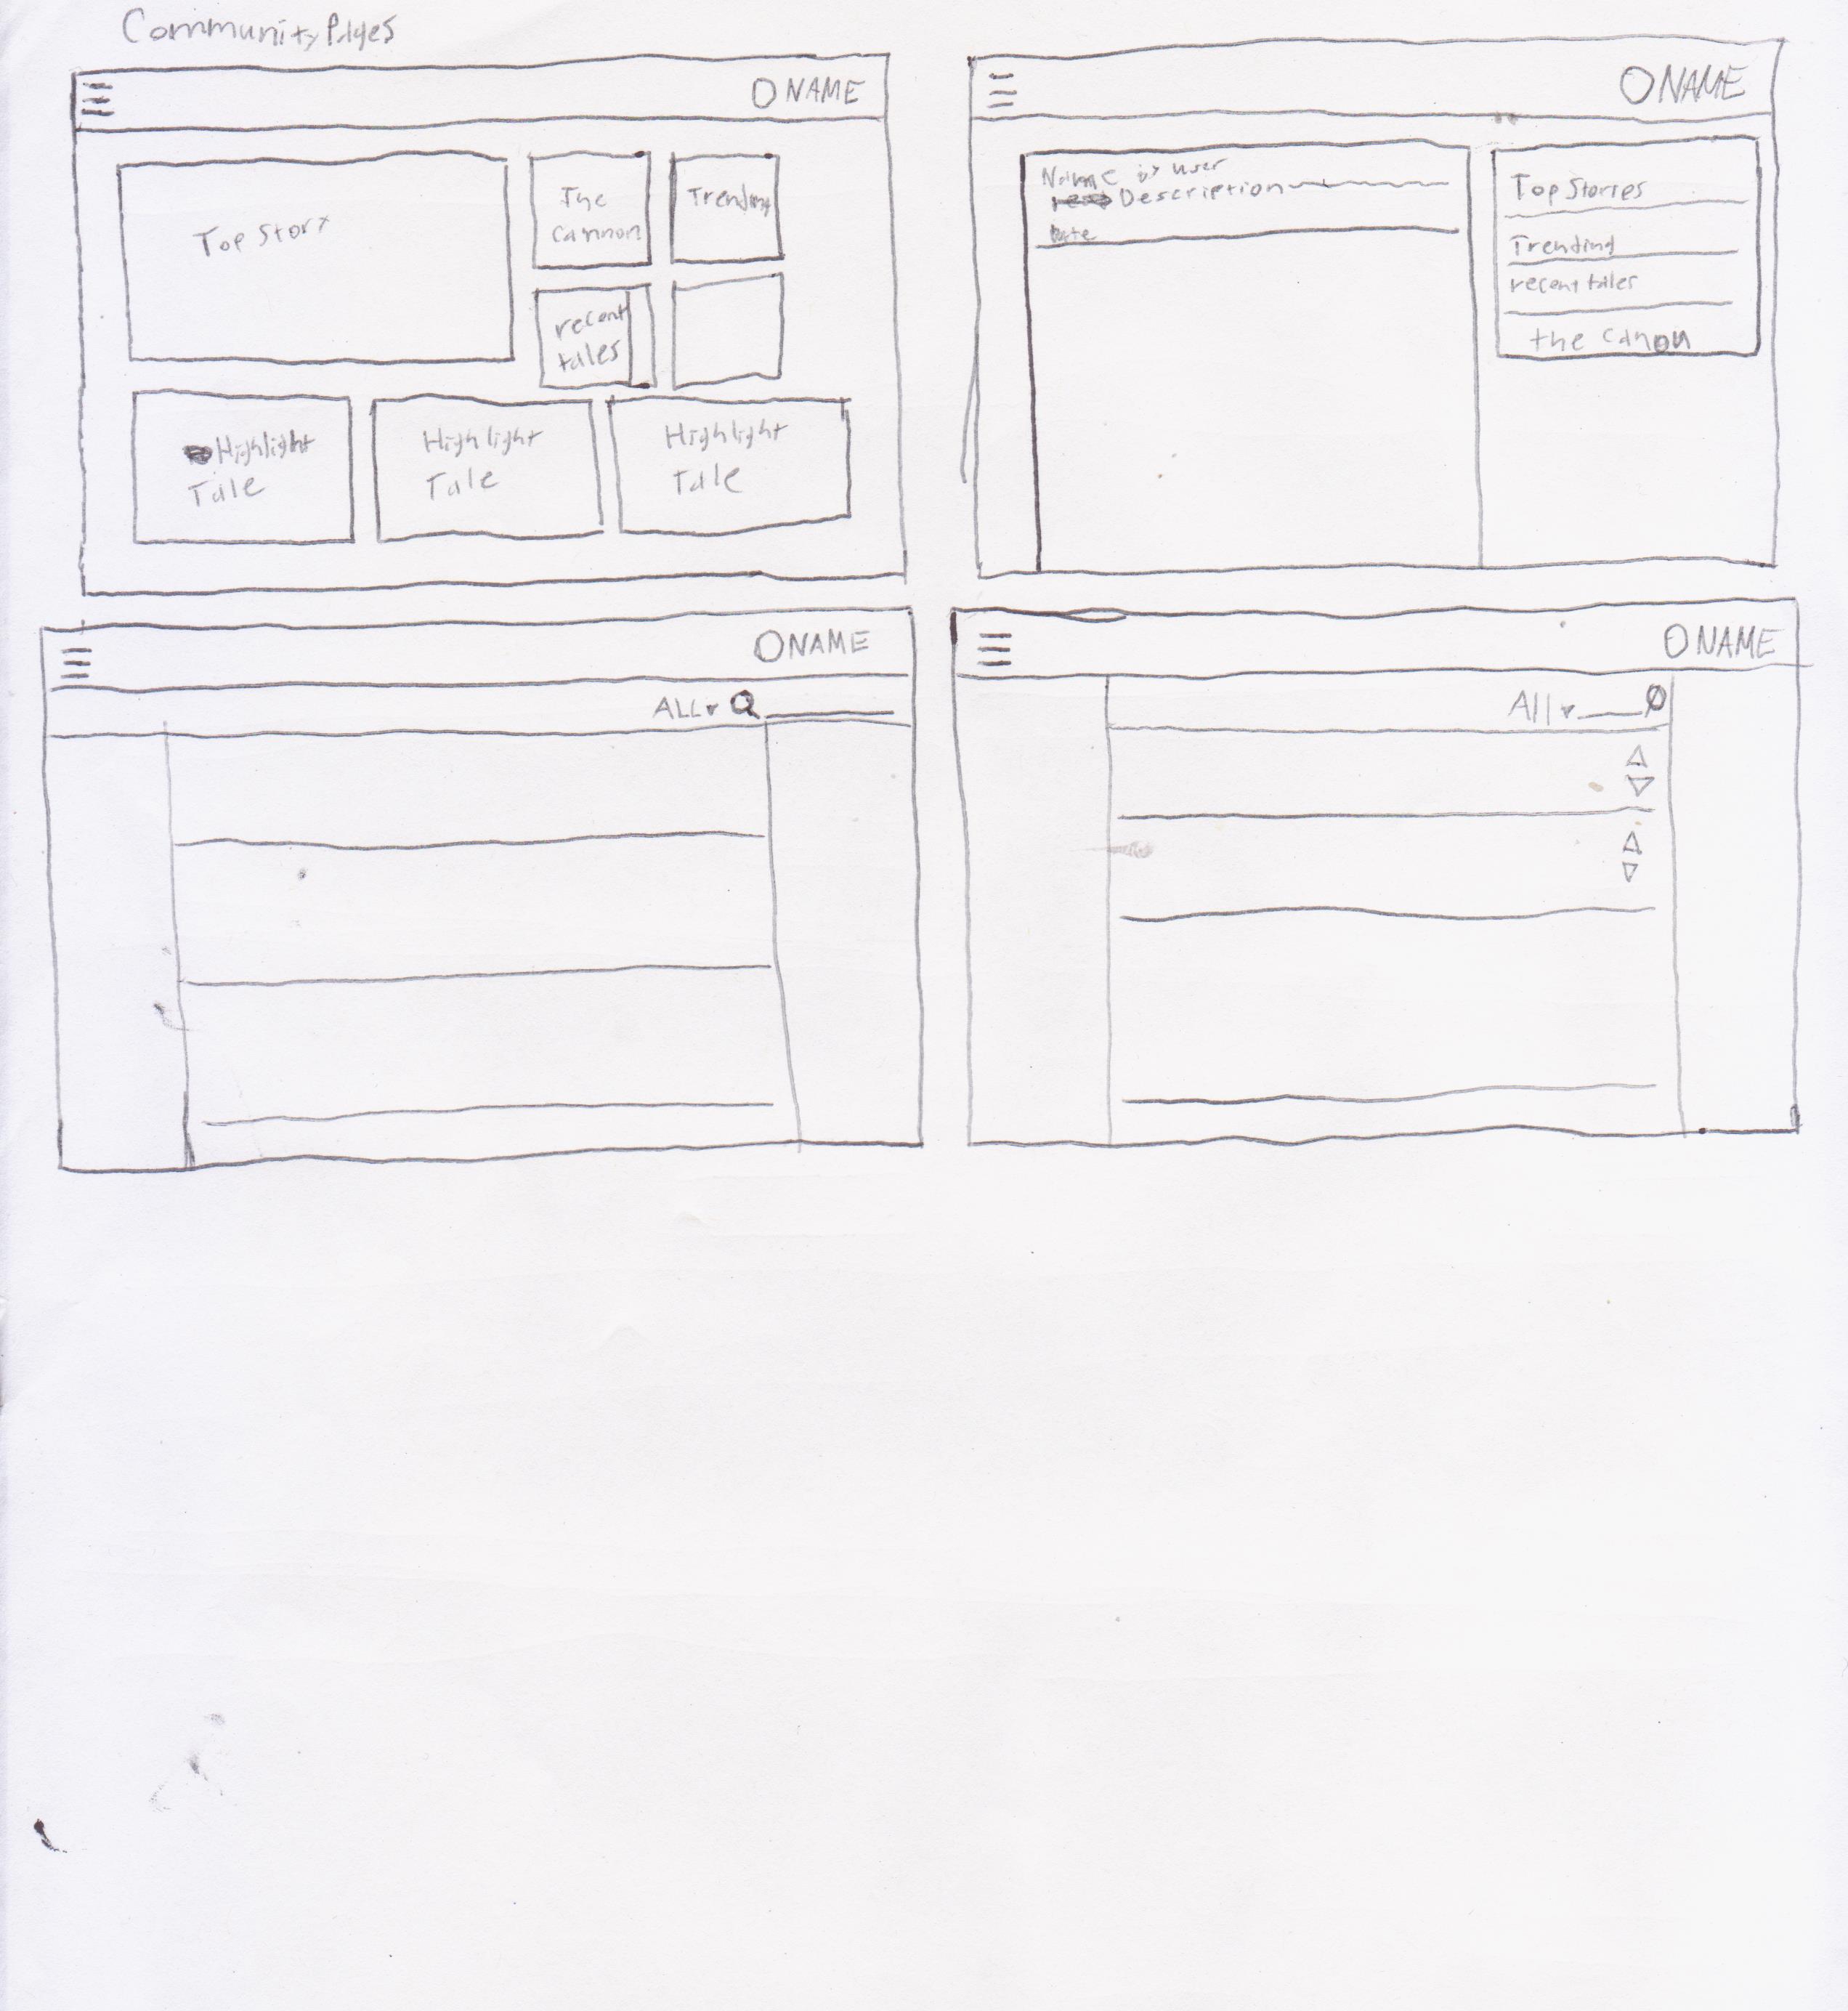 Community Pages
O NAME
Top Story
The
Cannon
Trending
recent
tales
Highlight
Tale
Highlight
Tale
Highlight
Tale
O NAME
Name by user
Description
Date
Top Stories
Trending
recent tales
the Canon
O NAME
ALL
O NAME
All